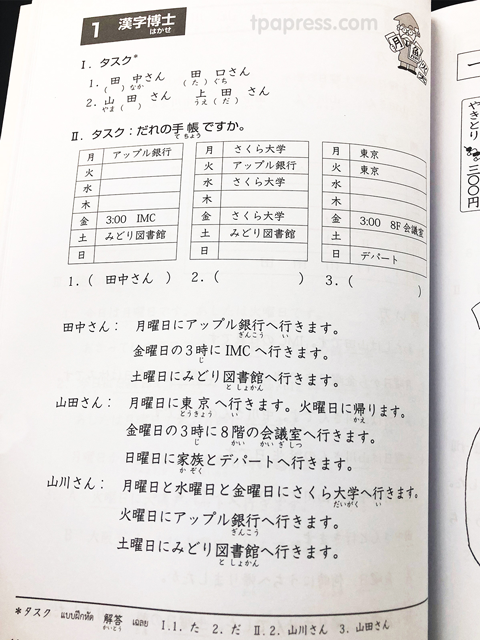 tpapress.com
1 漢字博士
はかせ
月 魚
Ⅰ. タスク*
1. 田 中さん 田 口さん
( ) なか ( た ) ぐち
2. 山 田 さん 上 田 さん
やま ( ) うえ ( だ )
Ⅱ. タスク:だれの手帳ですか。
てちょう
月 アップル銀行
火
水
木
金 3:00 IMC
土 みどり図書館
日
月 さくら大学
火 アップル銀行
水 さくら大学
木
金 さくら大学
土 みどり図書館
日
月 東京
火 東京
水
木
金 3:00 8F会議室
土
日 デパート
1. ( 田中さん ) 2. ( ) 3. ( )
田中さん: 月曜日にアップル銀行へ行きます。
ぎんこう い
金曜日の3時に IMC へ行きます。
じ
土曜日にみどり図書館へ行きます。
としょかん
山田さん: 月曜日に東京へ行きます。火曜日に帰ります。
とうきょう い かえ
金曜日の3時に8階の会議室へ行きます。
じ かい かいぎしつ
日曜日に家族とデパートへ行きます。
かぞく
山川さん: 月曜日と水曜日と金曜日にさくら大学へ行きます。
だいがく い
火曜日にアップル銀行へ行きます。
ぎんこう
土曜日にみどり図書館へ行きます。
としょかん
*タスク แบบฝึกหัด 解答 เฉลย Ⅰ.1.た 2.だ Ⅱ.2.山川さん 3.山田さん
かいとう
一
やきとり
三〇〇円